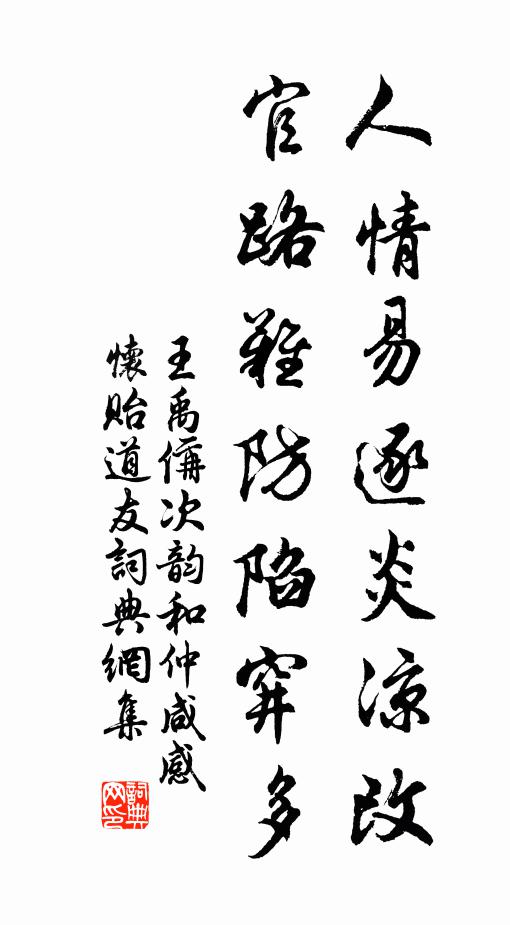 人情易逐炎凉改
官路難防陷穽多
王禹偁次韵和仲咸感
懷貽道友詞典網集
詞典网印